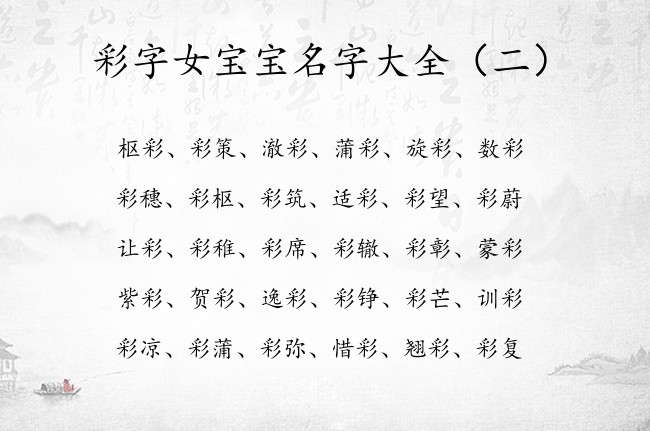 彩字女宝宝名字大全（二）
枢彩、彩策、澈彩、蒲彩、旋彩、数彩
彩穗、彩枢、彩筑、适彩、彩望、彩蔚
让彩、彩稚、彩席、彩辙、彩彰、蒙彩
紫彩、贺彩、逸彩、彩铮、彩芒、训彩
彩凉、彩蒲、彩弥、惜彩、翘彩、彩复